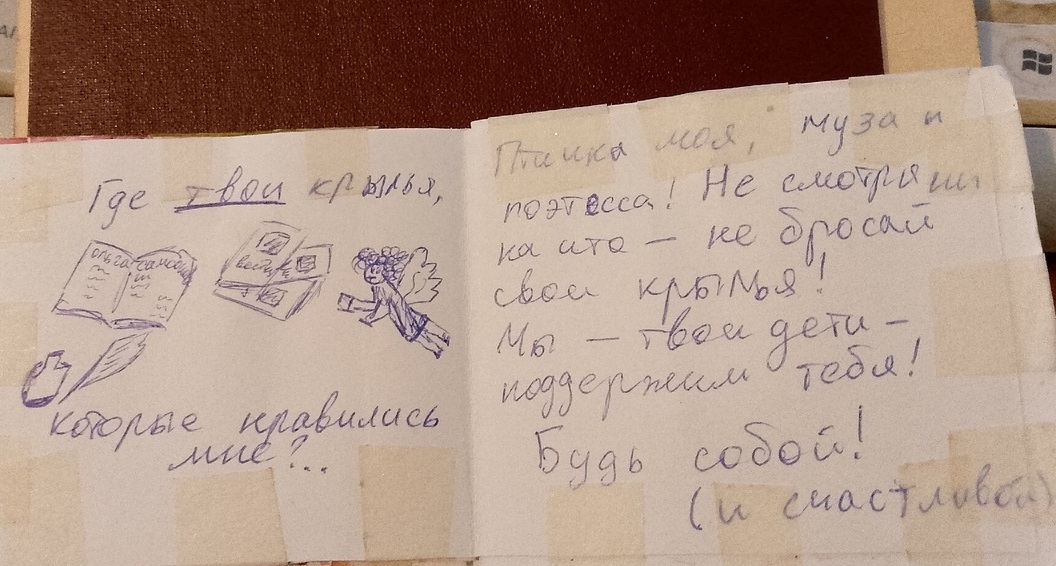 Где твои крылья,
ольга само
вести
которые нравились
мне?..
Птичка моя, муза и
поэтесса! Не смотря ни
на что — не бросай
свои крылья!
Мы — твои дети —
поддержим тебя!
Будь собой!
(и счастливой)